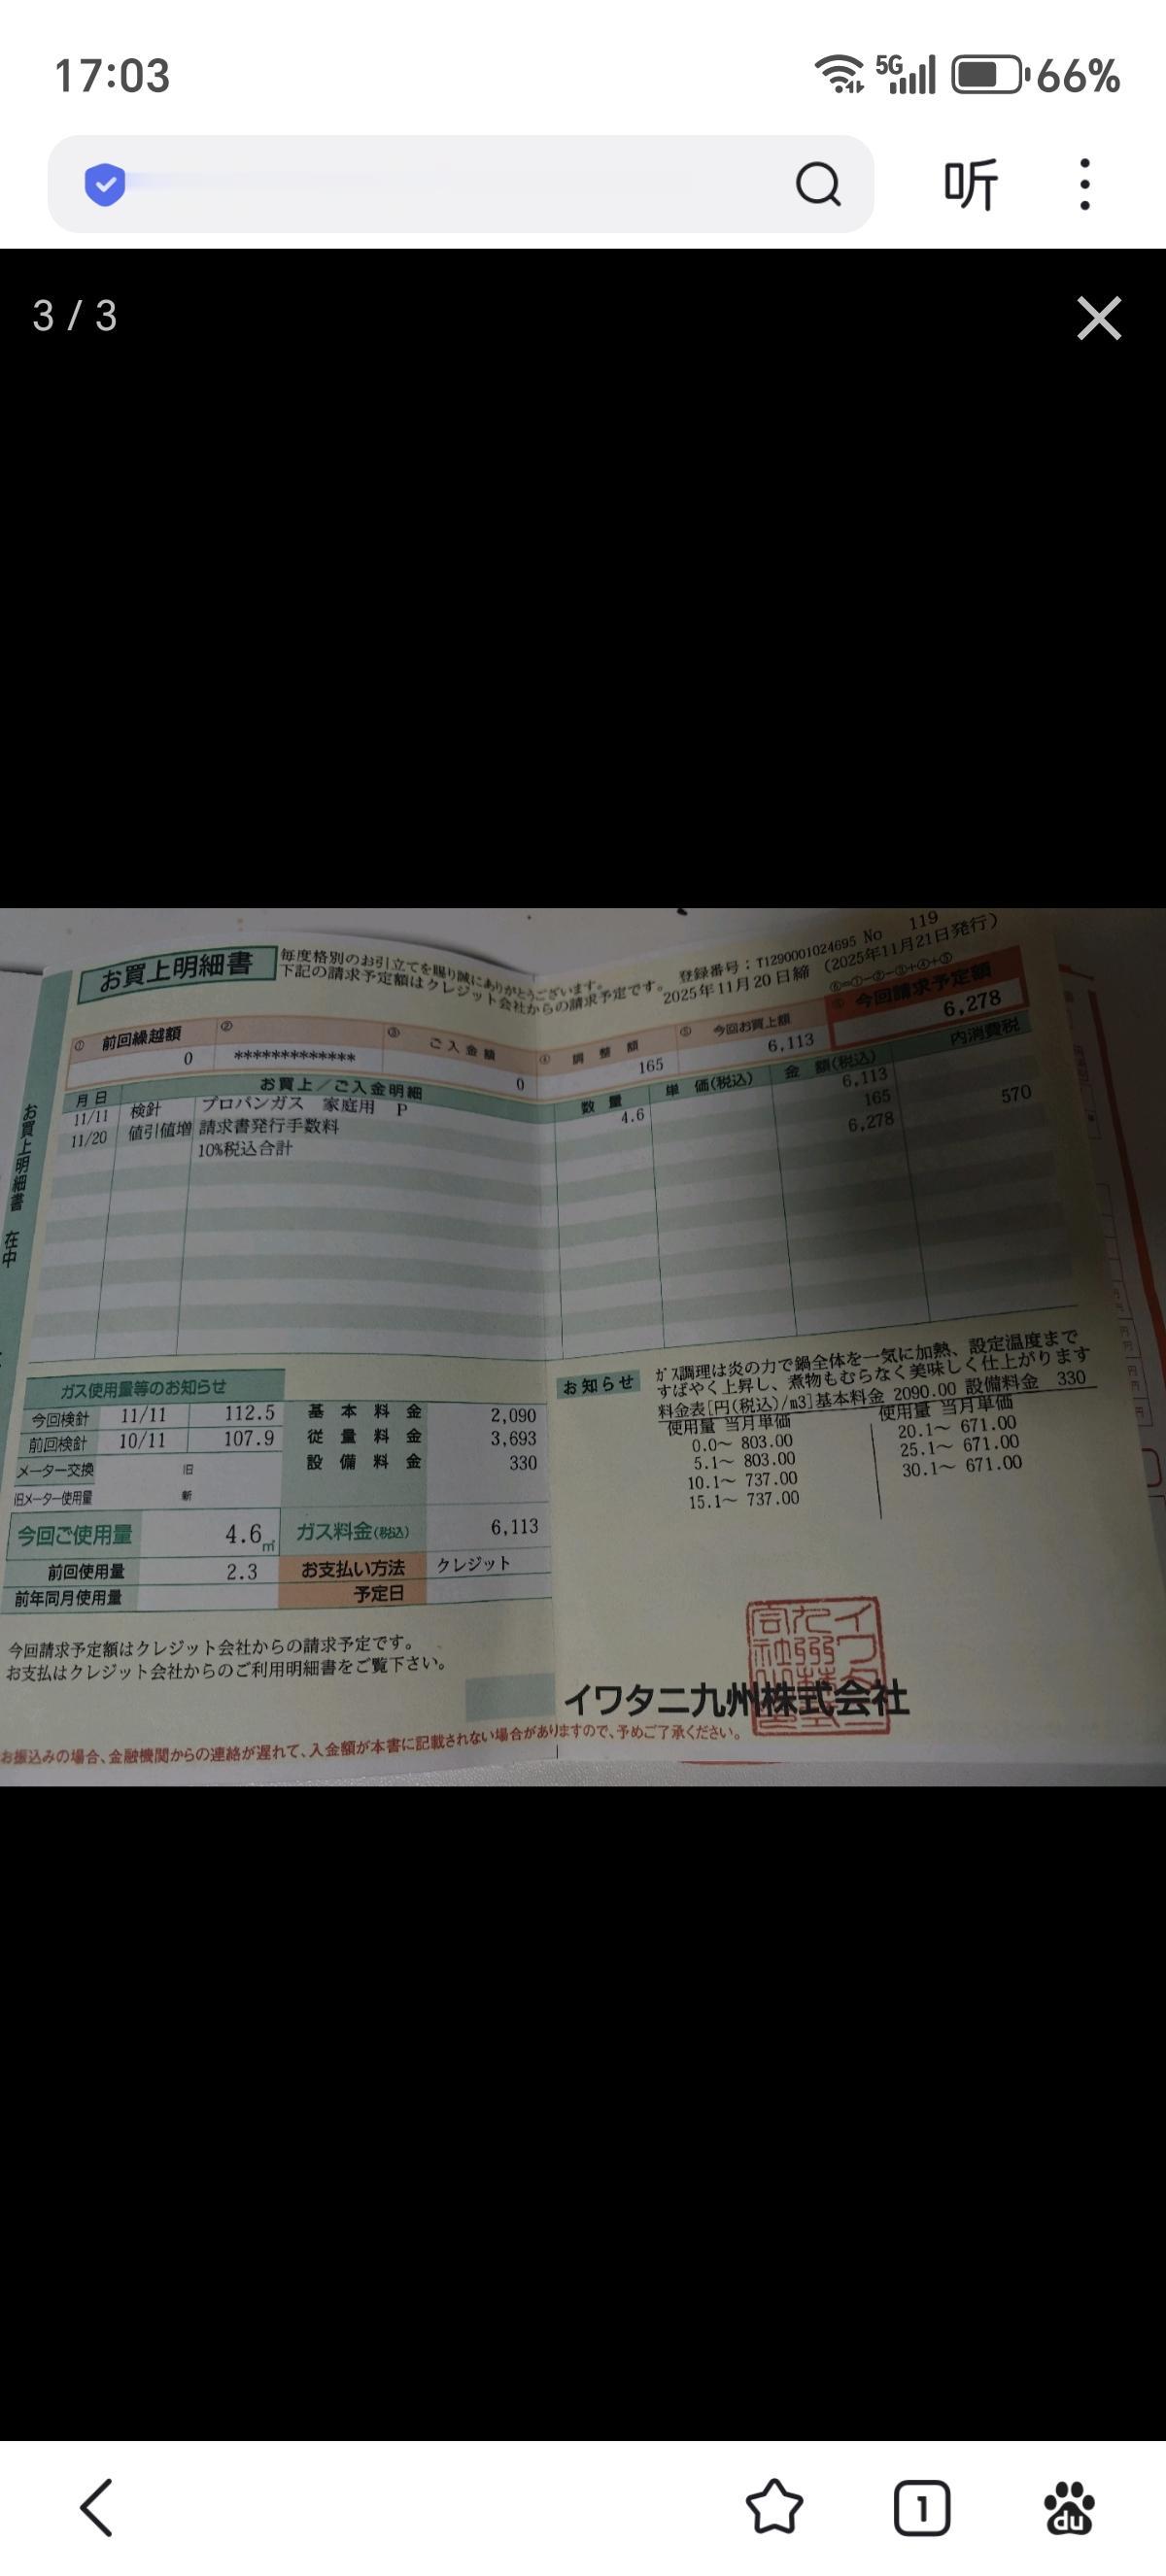 17:03
5G
66%
听
3 / 3
お買上明細書
毎度格別のお引立てを賜り誠にありがとうございます。
下記の請求予定額はクレジット会社からの請求予定です。
登録番号:T1290001024695 No 119
2025年11月20日締 (2025年11月21日発行)
⑥=①-②-③+④+⑤
① 前回繰越額
0
②
*************
③ ご入金額
0
④ 調整額
165
⑤ 今回お買上額
6,113
今回請求予定額
6,278
月日 お買上/ご入金明細 数量 単価(税込) 金額(税込) 内消費税
11/11 検針 プロパンガス 家庭用 P 4.6 6,113
11/20 値引値増 請求書発行手数料 165
10%税込合計 6,278 570
お買上明細書 在中
ガス使用量等のお知らせ
今回検針 11/11 112.5
前回検針 10/11 107.9
メーター交換 旧
旧メーター使用量 新
今回ご使用量 4.6 ㎥
前回使用量 2.3
前年同月使用量
基本料金 2,090
従量料金 3,693
設備料金 330
ガス料金(税込) 6,113
お支払い方法 クレジット
予定日
お知らせ
ガス調理は炎の力で鍋全体を一気に加熱、設定温度まで
すばやく上昇し、煮物もむらなく美味しく仕上がります
料金表[円(税込)/m3]基本料金 2090.00 設備料金 330
使用量 当月単価 使用量 当月単価
0.0~ 803.00 20.1~ 671.00
5.1~ 803.00 25.1~ 671.00
10.1~ 737.00 30.1~ 671.00
15.1~ 737.00
今回請求予定額はクレジット会社からの請求予定です。
お支払はクレジット会社からのご利用明細書をご覧下さい。
イワタニ九州株式会社
お振込みの場合、金融機関からの連絡が遅れて、入金額が本書に記載されない場合がありますので、予めご了承ください。
1
du